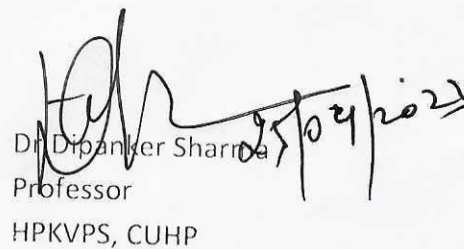 Dr Dipanker Sharma
Professor
HPKVPS, CUHP